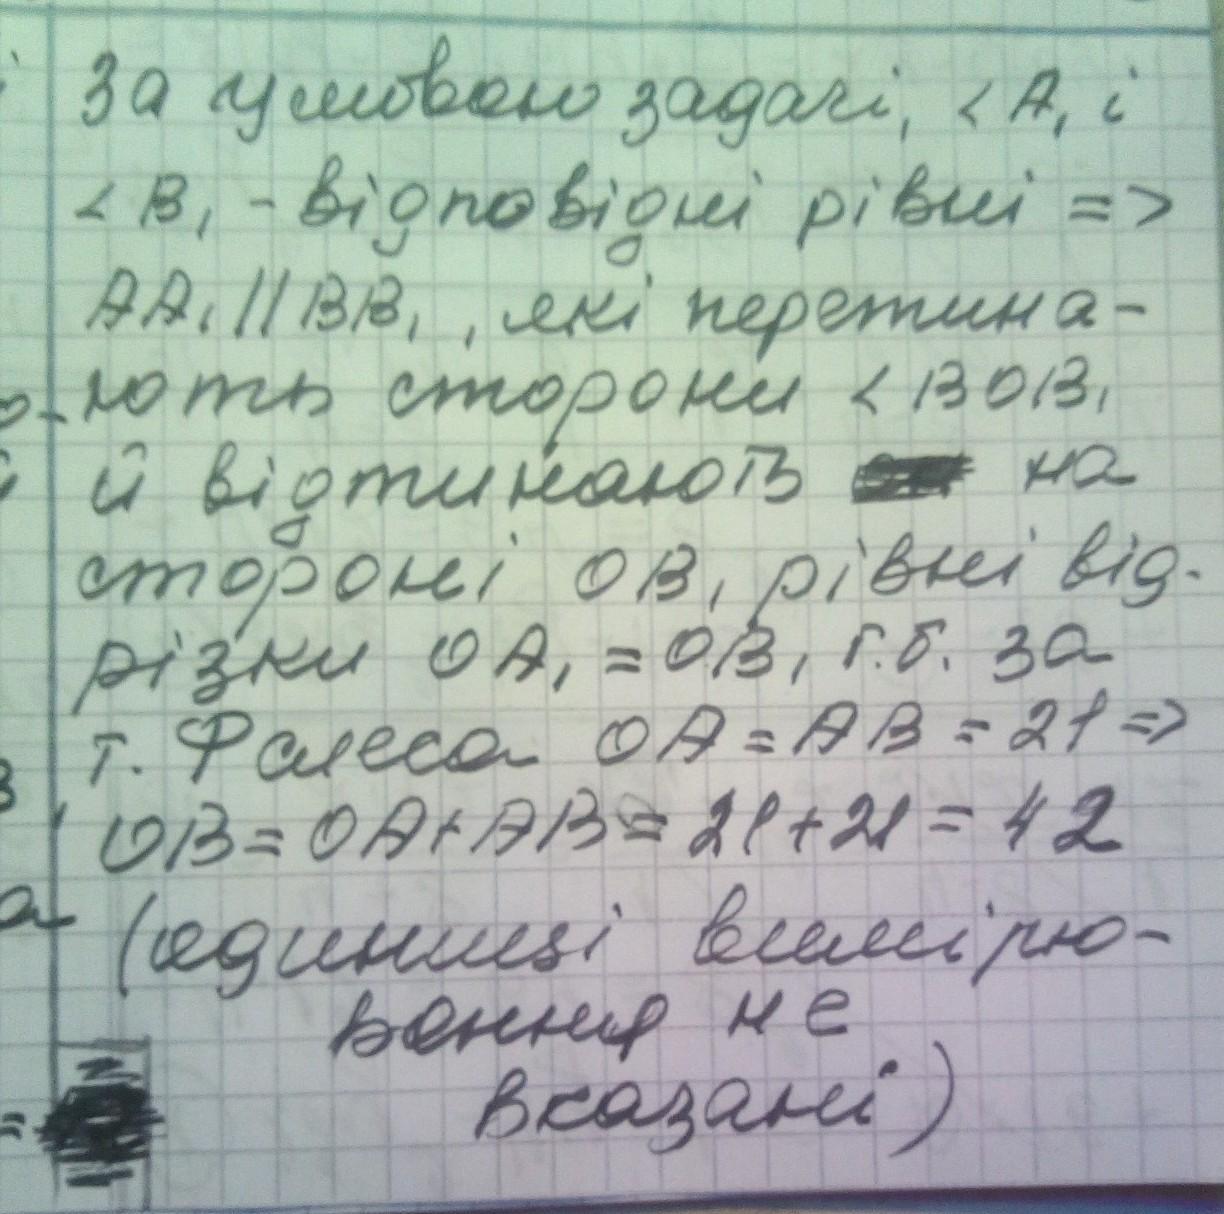 За умовою задачі, <A₁ і
<B₁ - відповідні рівні =>
AA₁ || BB₁, які перетина-
ють сторони <BOB₁
й відтинають на
стороні OB₁ рівні від-
різки OA₁ = OB₁ т.б. за
т. Фалеса OA = AB = 21 =>
OB = OA + AB = 21 + 21 = 42
(одиниці вимірю-
вання не
вказані)